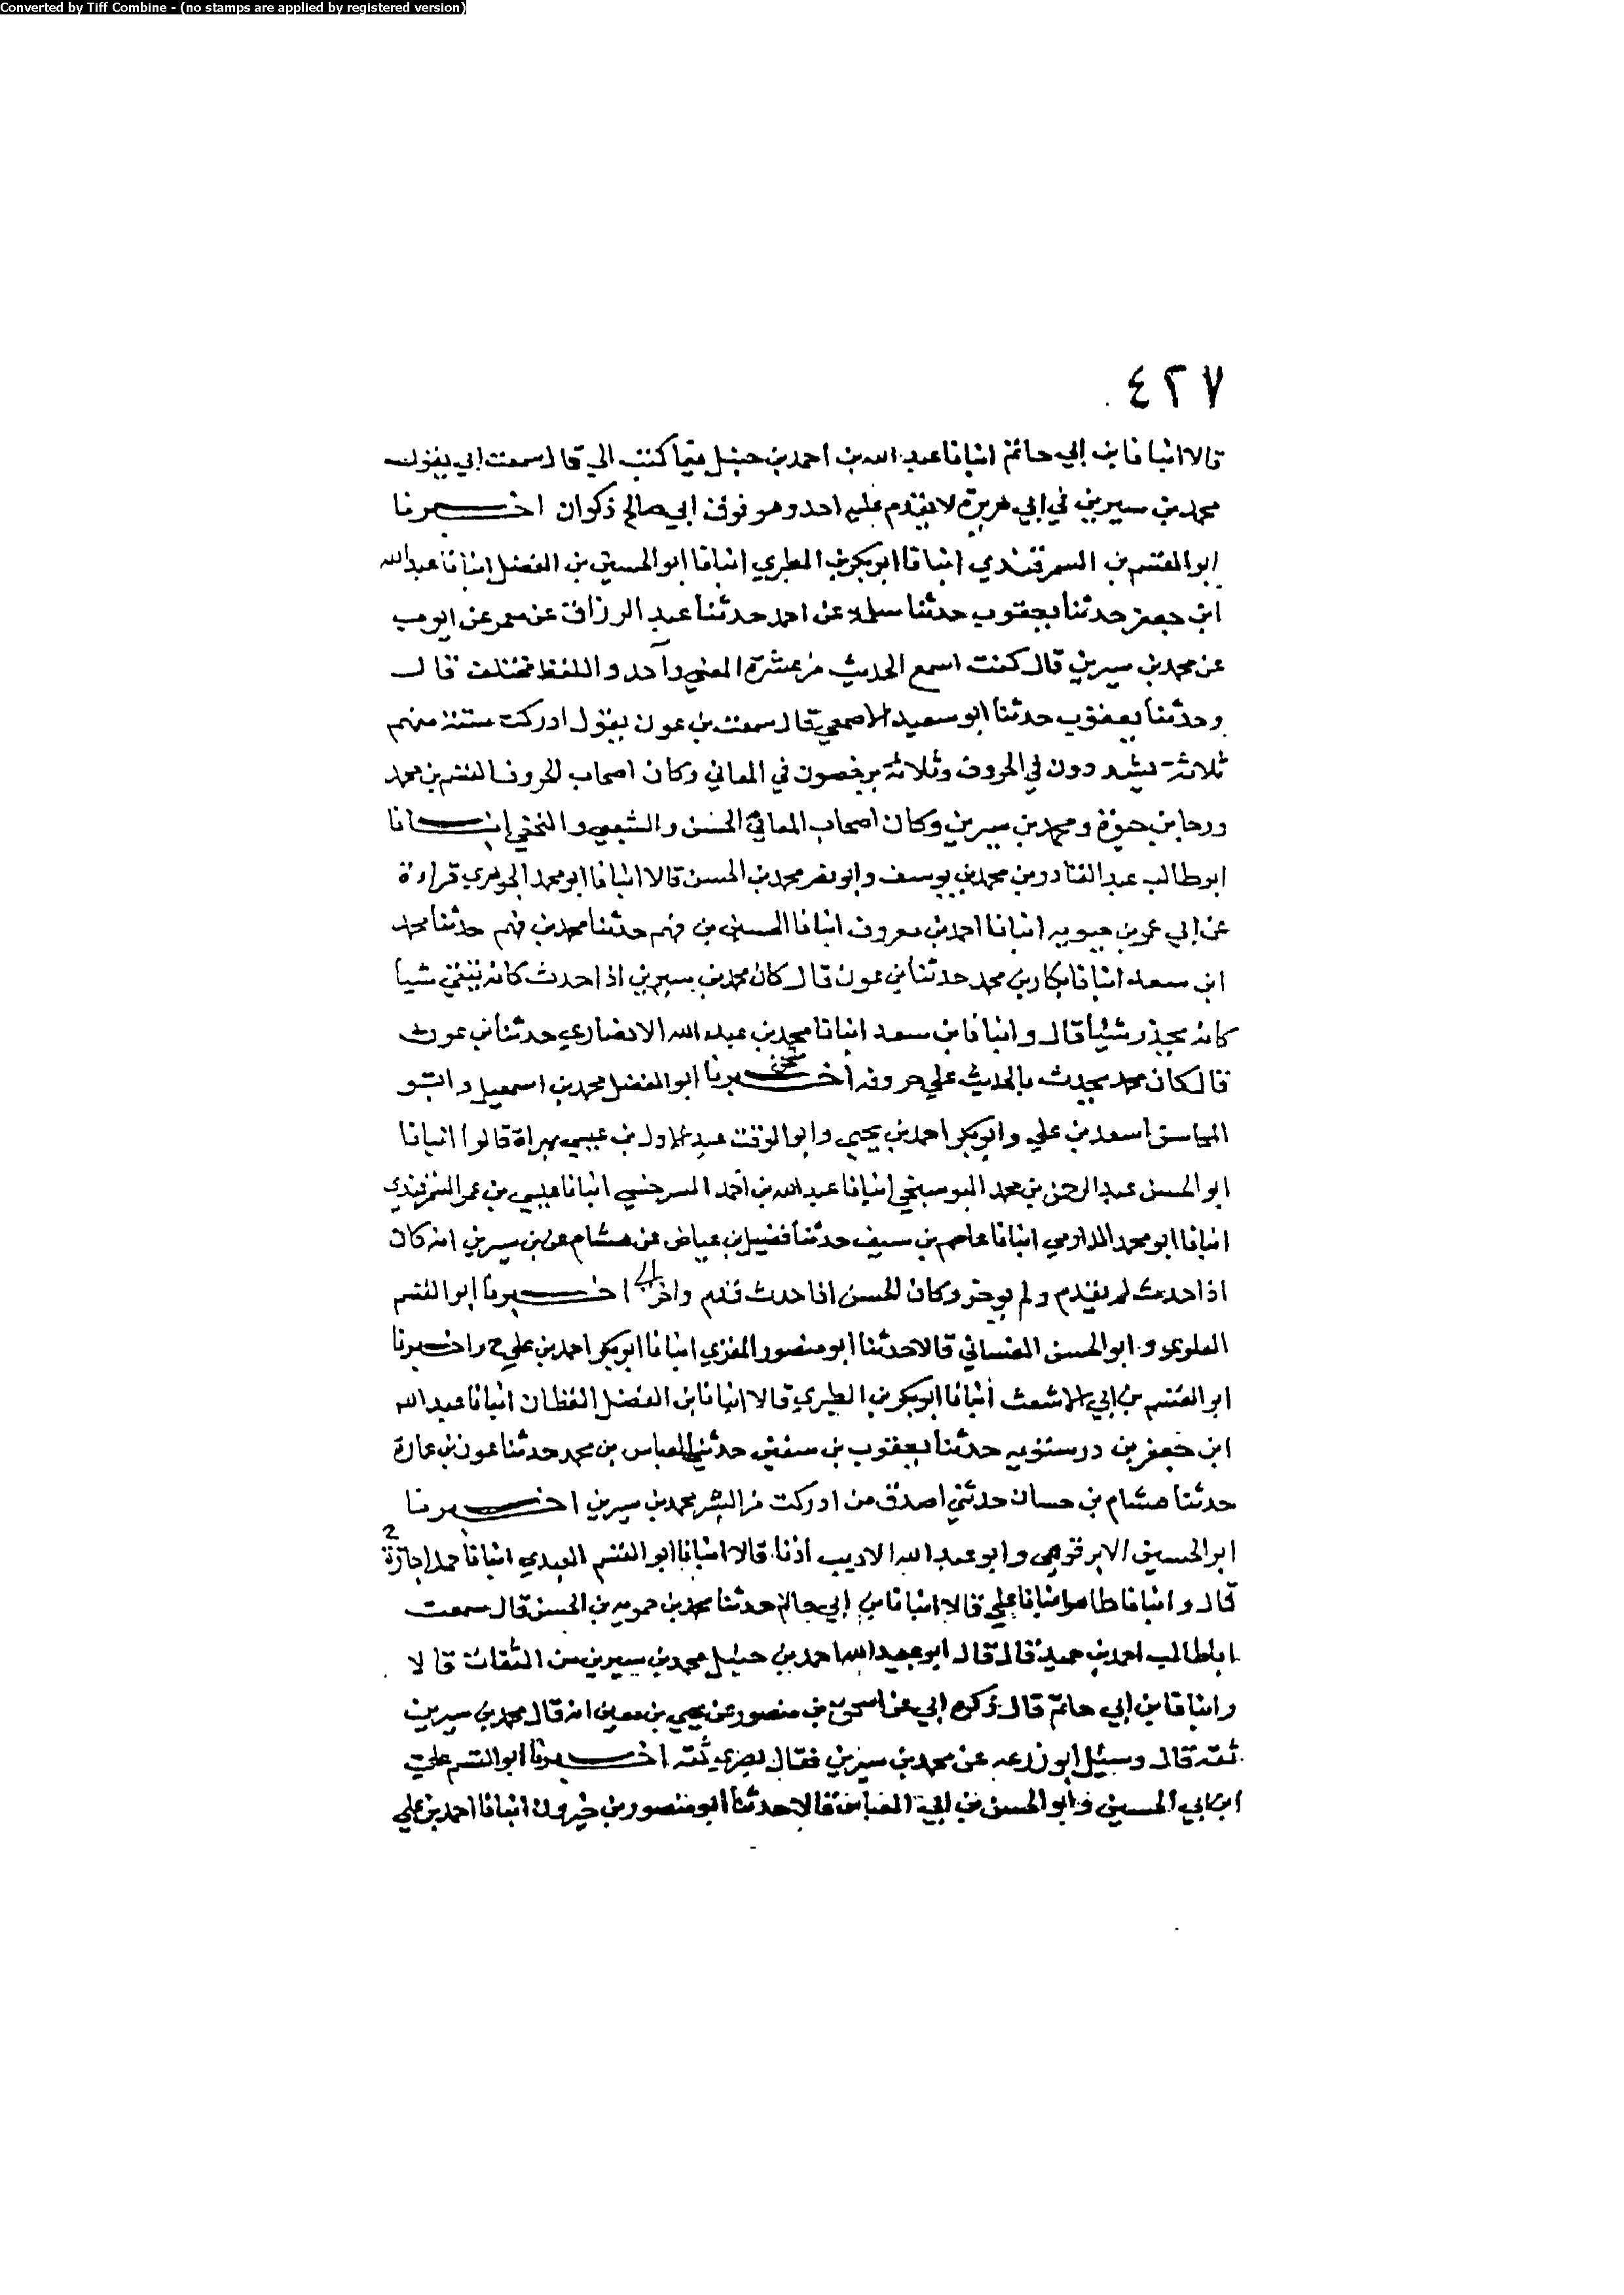 Converted by Tiff Combine - (no stamps are applied by registered version)
٤٢٧
قالا انبانا بن ابي حاتم انبانا عبد الله بن احمد بن حنبل فيما كتب الي قال سمعت ابي يقول
محمد بن سيرين في ابي هريرة لا يقدم عليه احد وهو فوق ابي صالح ذكوان اخبرنا
ابو القسم بن السمرقندي انبانا ابو بكر بن الطبري انبانا ابو الحسين بن الفضل انبانا عبد الله
ابن جعفر حدثنا يعقوب حدثنا سلمة عن احمد حدثنا عبد الرزاق عن معمر عن ايوب
عن محمد بن سيرين قال كنت اسمع الحديث من عشرة المعنى واحد واللفظ مختلف قال
وحدثنا يعقوب حدثنا ابو سعيد الاصمعي قال سمعت بن عون يقول ادركت ستة منهم
ثلاثة يشددون في الحروف وثلاثة يرخصون في المعاني وكان اصحاب الحروف القسم بن محمد
ورجا بن حيوة ومحمد بن سيرين وكان اصحاب المعاني الحسن والشعبي والنخعي انبانا
ابو طالب عبد القادر بن محمد بن يوسف وابو نصر محمد بن الحسن قالا انبانا ابو محمد الجوهري قراءة
عن ابي عمر بن حيويه انبانا احمد بن معروف انبانا الحسين بن فهم حدثنا محمد بن فهم حدثنا محمد
ابن سعد انبانا بكار بن محمد حدثنا بن عون قال كان محمد بن سيرين اذا حدث كانه يتقي شيا
كانه يحذر شيئا قال وانبانا بن سعد انبانا محمد بن عبد الله الانصاري حدثنا بن عون
قال كان محمد يحدث بالحديث على حروفه اخبرنا ابو الفضل محمد بن اسمعيل وابو
المحاسن اسعد بن علي وابو بكر احمد بن يحيى وابو الوقت عبد الاول بن عيسى بهراة قالوا انبانا
ابو الحسن عبد الرحمن بن محمد البوسنجي انبانا عبد الله بن احمد السرخسي انبانا عيسى بن عمر السمرقندي
انبانا ابو محمد الدارمي انبانا عاصم بن سيف حدثنا فضيل بن عياض عن هشام عن بن سيرين انه كان
اذا حدث لم يقدم ولم يوخر وكان الحسن اذا حدث قدم واخر اخبرنا ابو القسم
العلوي وابو الحسن الغساني قالا حدثنا ابو منصور المقري انبانا ابو بكر احمد بن علي ح واخبرنا
ابو القسم بن ابي الاشعث انبانا ابو بكر بن الطبري قالا انبانا بن الفضل القطان انبانا عبد الله
ابن جعفر بن درستويه حدثنا يعقوب بن سفين حدثني العباس بن محمد حدثنا عون بن عمارة
حدثنا هشام بن حسان حدثني اصدق من ادركت من البشر محمد بن سيرين اخبرنا
ابو الحسين الابرقوهي وابو عبد الله الاديب اذنا قالا انبانا ابو القسم العبدي انبانا حمد اجازة
قال وانبانا طاهر انبانا علي قالا انبانا بن ابي حاتم حدثنا محمد بن حمويه بن الحسن قال سمعت
اباطالب احمد بن حميد قال قال ابو عبد الله احمد بن حنبل محمد بن سيرين من الثقات قالا
وانبانا بن ابي حاتم قال ذكره ابي عن اسحق بن منصور عن يحيى بن معين انه قال محمد بن سيرين
ثقة قال وسئل ابو زرعه عن محمد بن سيرين فقال بصري ثقه اخبرنا ابو القسم علي
ابن ابي الحسين وابو الحسن بن قالا حدثنا ابو منصور بن خيرون انبانا احمد بن علي